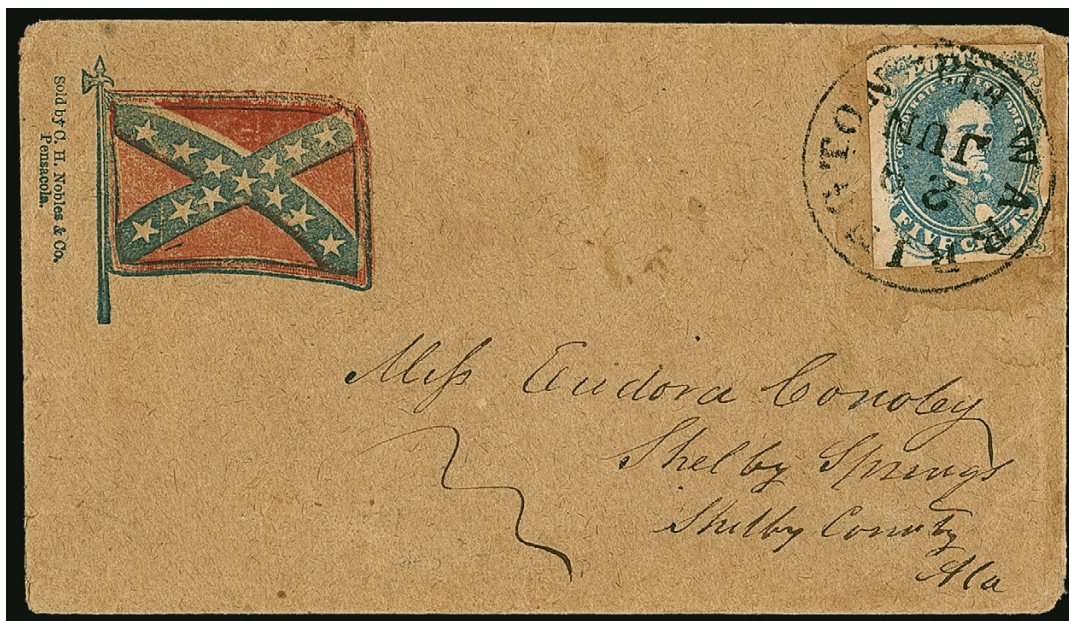 Sold by C. H. Nobles & Co.
Pensacola.
WARRINGTON Fla
JUN
2
FIVE CENTS
Miss Eudora Conoley
Shelby Springs
Shelby County
Ala